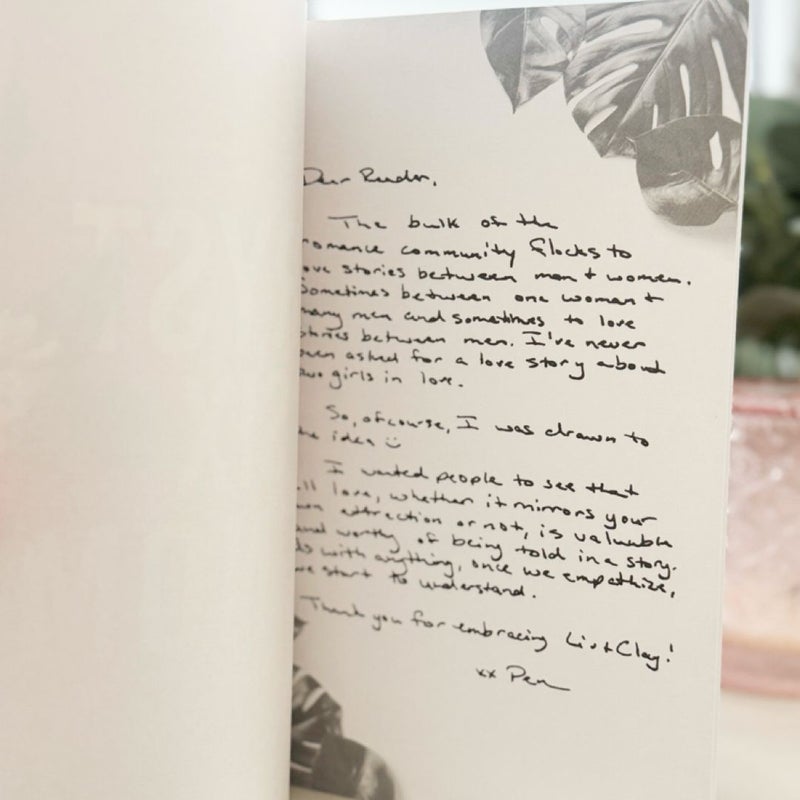 Dear Reader,
The bulk of the
romance community flocks to
love stories between men + women.
Sometimes between one woman +
many men and sometimes to love
stories between men. I've never
been asked for a love story about
two girls in love.
So, of course, I was drawn to
the idea ☺
I wanted people to see that
all love, whether it mirrors your
own attraction or not, is valuable
and worthy of being told in a story.
As with anything, once we empathize,
we start to understand.
Thank you for embracing Liv + Clay!
xx Pen